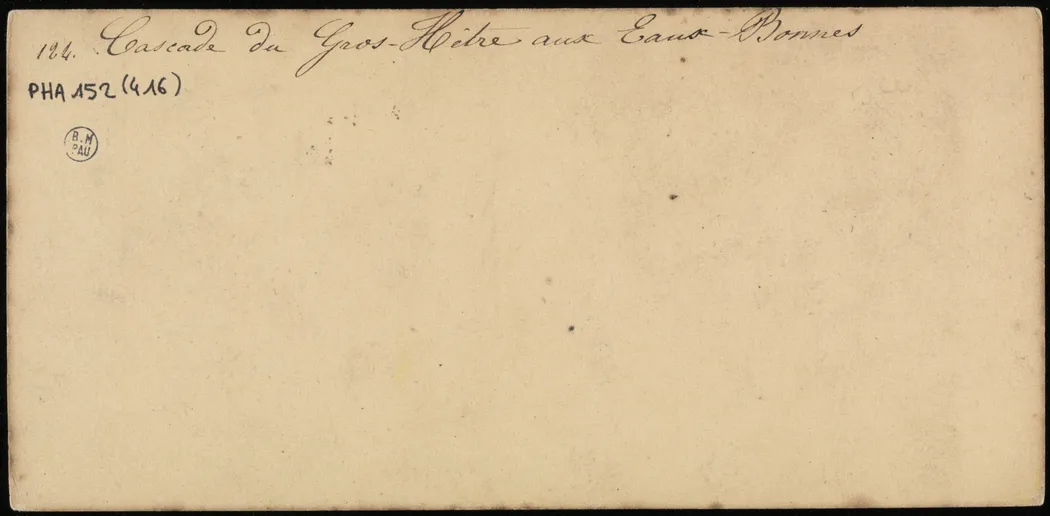 124. Cascade du Gros-Hêtre aux Eaux-Bonnes
PHA 152 (416)
B.M
PAU